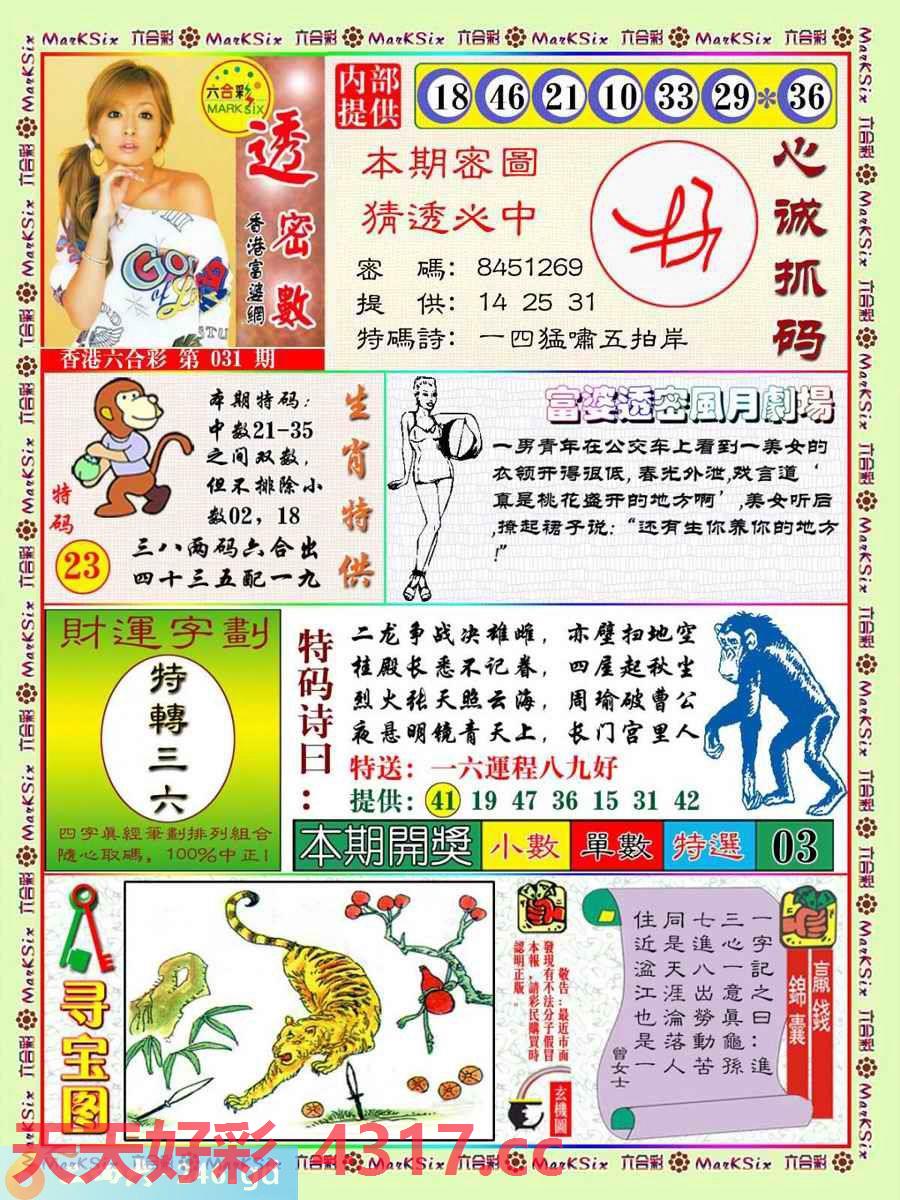 MarKSix 六合彩 MarKSix 六合彩 MarKSix 六合彩 MarKSix 六合彩 MarKSix 六合彩
六合彩
MARK Six
透密數
香港富婆網
香港六合彩 第 031 期
内部提供
18 46 21 10 33 29 * 36
本期密圖
猜透必中
密 碼: 8451269
提 供: 14 25 31
特碼詩: 一四猛嘯五拍岸
心诚抓码
特码
23
本期特码:
中数21-35
之间双数,
但不排除小
数02, 18
三八两码六合出
四十三五配一九
生肖特供
富婆透密風月劇場
一男青年在公交车上看到一美女的
衣领开得很低,春光外泄,戏言道‘
真是桃花盛开的地方啊’,美女听后
,撩起裙子说:“还有生你养你的地方
!”
財運字劃
特轉三六
四字真經筆劃排列組合
隨心取碼, 100%中正!
特码诗曰:
二龙争战决雄雌, 赤壁扫地空
桂殿长悉不记春, 四屋起秋尘
烈火张天照云海, 周瑜破曹公
夜悬明镜青天上, 长门宫里人
特送: 一六運程八九好
提供: 41 19 47 36 15 31 42
本期開獎 小數 單數 特選 03
寻宝图
敬告:最近市面
發現有不法分子假冒
本報,請彩民購買時
認明正版。
玄機圖
贏錢錦囊
一字記之曰:進
三心一意真龜孫
七進八出勞動苦
同是天涯淪落人
住近湓江也是一
曾女士
天天好彩 4317.cc
MarKSix 六合彩 MarKSix 六合彩 MarKSix 六合彩